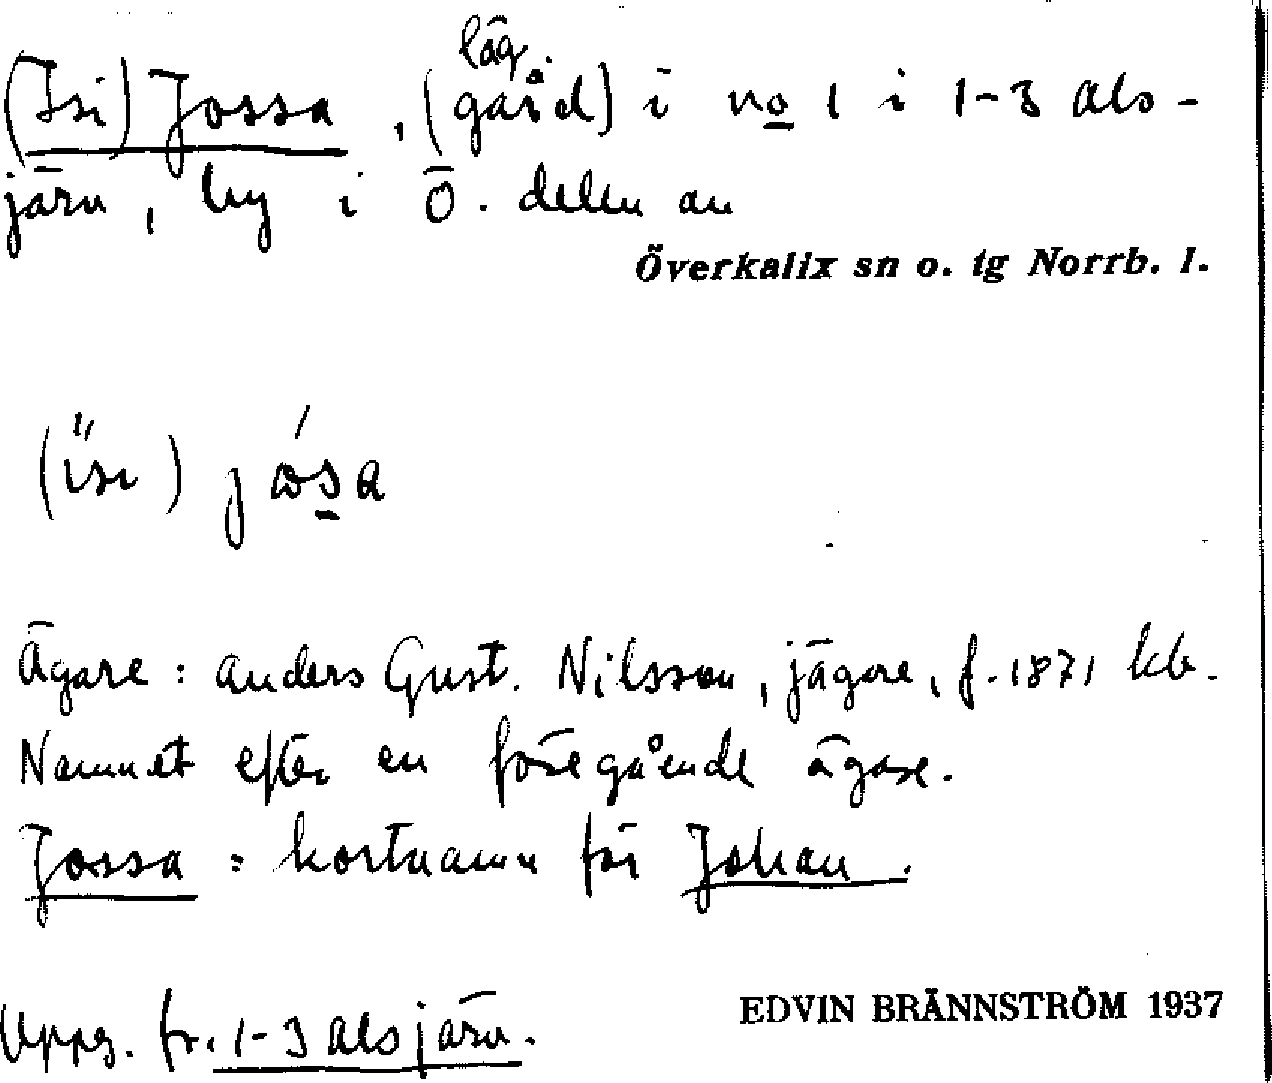 läg.
(Isi) Jossa, (gård) i no 1 i 1-3 Als-
järv, by i Ö. delen av
Överkalix sn o. tg Norrb. l.
(isi) jåsa
Ägare: Anders Gust. Nilsson, jägare, f. 1871 kb.
Namnet efter en föregående ägare.
Jossa = kortnamn för Johan.
EDVIN BRÄNNSTRÖM 1937
Uppg. fr. 1-3 Alsjärv.